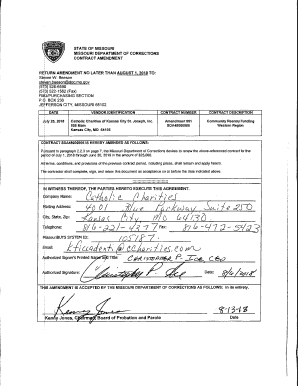 STATE OF MISSOURI
MISSOURI DEPARTMENT OF CORRECTIONS
CONTRACT AMENDMENT
RETURN AMENDMENT NO LATER THAN AUGUST 1, 2018 TO:
Steven W. Beeson
steven.beeson@doc.mo.gov
(573) 526-6590
(573) 522-1562 (Fax)
FMU/PURCHASING SECTION
P.O. BOX 236
JEFFERSON CITY, MISSOURI 65102
DATE VENDOR IDENTIFICATION CONTRACT NUMBER CONTRACT DESCRIPTION
July 25, 2018 Catholic Charities of Kansas City St. Joseph, Inc. Amendment 001 Community Reentry Funding
Kansas City, MO 64105 Western Region
CONTRACT IS HEREBY AMENDED AS FOLLOWS:
Pursuant to paragraph on page 7, the Missouri Department of Corrections desires to renew the above-referenced contract for the
period of July 1, 2018 through June 30, 2019 in the amount of
All terms, conditions, and provisions of the previous contract period, including prices, shall remain and apply hereto.
The contractor shall complete, sign, and return this document as acceptance on or before the date indicated above.
IN WITNESS THEREOF, THE PARTIES HERETO EXECUTE THIS AGREEMENT.
Company Name: Catholic Charities
Mailing Address: 4001 Blue Parkway Suite 250
City, State, Zip: Kansas City MO 64130
Telephone: 816-221-4377 Fax: 816-472-5423
MissouriBUYS SYSTEM ID: 105187
Email: @ccharities.com
Authorized Signer's Printed Name and Title: CHRISTOPHER P. ICE, CEO
Authorized Signature: Christopher P. Ice Date: 8/6/2018
THIS AMENDMENT IS ACCEPTED BY THE MISSOURI DEPARTMENT OF CORRECTIONS AS FOLLOWS: In its entirety.
Kenny Jones 8-13-18
Kenny Jones, Chairman, Board of Probation and Parole Date